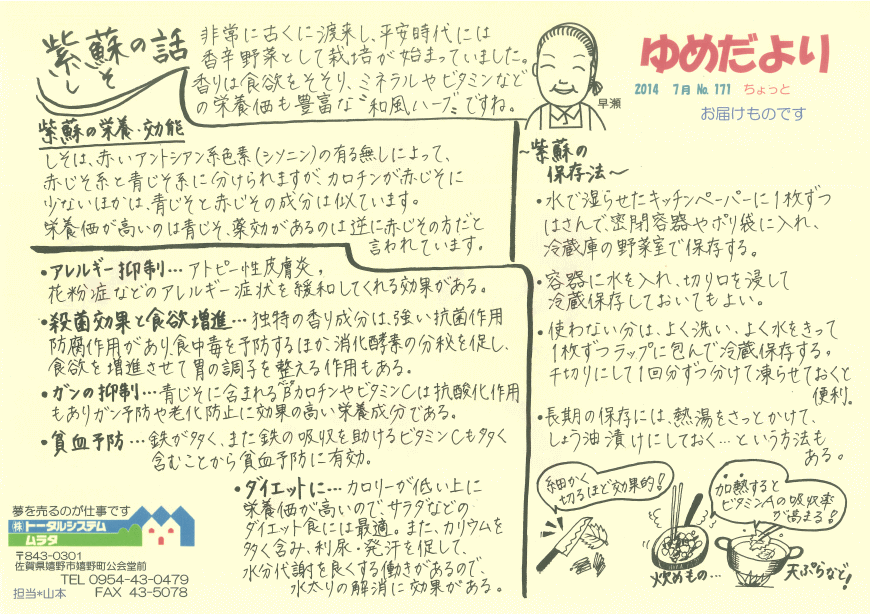 紫蘇の話
しそ
非常に古くに渡来し、平安時代には
香辛野菜として栽培が始まっていました。
香りは食欲をそそり、ミネラルやビタミンなど
の栄養価も豊富な“和風ハーブ”ですね。
早瀬
ゆめだより
2014 7月 No.171 ちょっと
お届けものです
紫蘇の栄養・効能
しそは、赤いアントシアン系色素(シソニン)の有る無しによって、
赤じそ系と青じそ系に分けられますが、カロチンが赤じそに
少ないほかは、青じそと赤じその成分は似ています。
栄養価が高いのは青じそ、薬効があるのは逆に赤じその方だと
言われています。
・アレルギー抑制…アトピー性皮膚炎。
花粉症などのアレルギー症状を緩和してくれる効果がある。
・殺菌効果と食欲増進…独特の香り成分は、強い抗菌作用
防腐作用があり、食中毒を予防するほか、消化酵素の分秘を促し、
食欲を増進させて胃の調子を整える作用もある。
・ガンの抑制…青じそに含まれるβカロチンやビタミンCは抗酸化作用
もありガン予防や老化防止に効果の高い栄養成分である。
・貧血予防…鉄が多く、また鉄の吸収を助けるビタミンCも多く
含むことから貧血予防に有効。
・ダイエットに…カロリーが低い上に
栄養価が高いので、サラダなどの
ダイエット食には最適。また、カリウムを
多く含み、利尿・発汗を促して、
水分代謝を良くする働きがあるので、
水太りの解消に効果がある。
〜紫蘇の
保存法〜
・水で湿らせたキッチンペーパーに1枚ずつ
はさんで、密閉容器やポリ袋に入れ、
冷蔵庫の野菜室で保存する。
・容器に水を入れ、切り口を浸して
冷蔵保存しておいてもよい。
・使わない分は、よく洗い、よく水をきって
1枚ずつラップに包んで冷蔵保存する。
千切りにして1回分ずつ分けて凍らせておくと
便利。
・長期の保存には、熱湯をさっとかけて、
しょう油漬けにしておく…という方法も
ある。
細かく
切るほど効果的!
加熱すると
ビタミンAの吸収率
が高まる!
炒めもの…
天ぷらなど!
夢を売るのが仕事です
(株)トータルシステム
ムラタ
〒843-0301
佐賀県嬉野市嬉野町公会堂前
TEL 0954-43-0479
担当*山本 FAX 43-5078